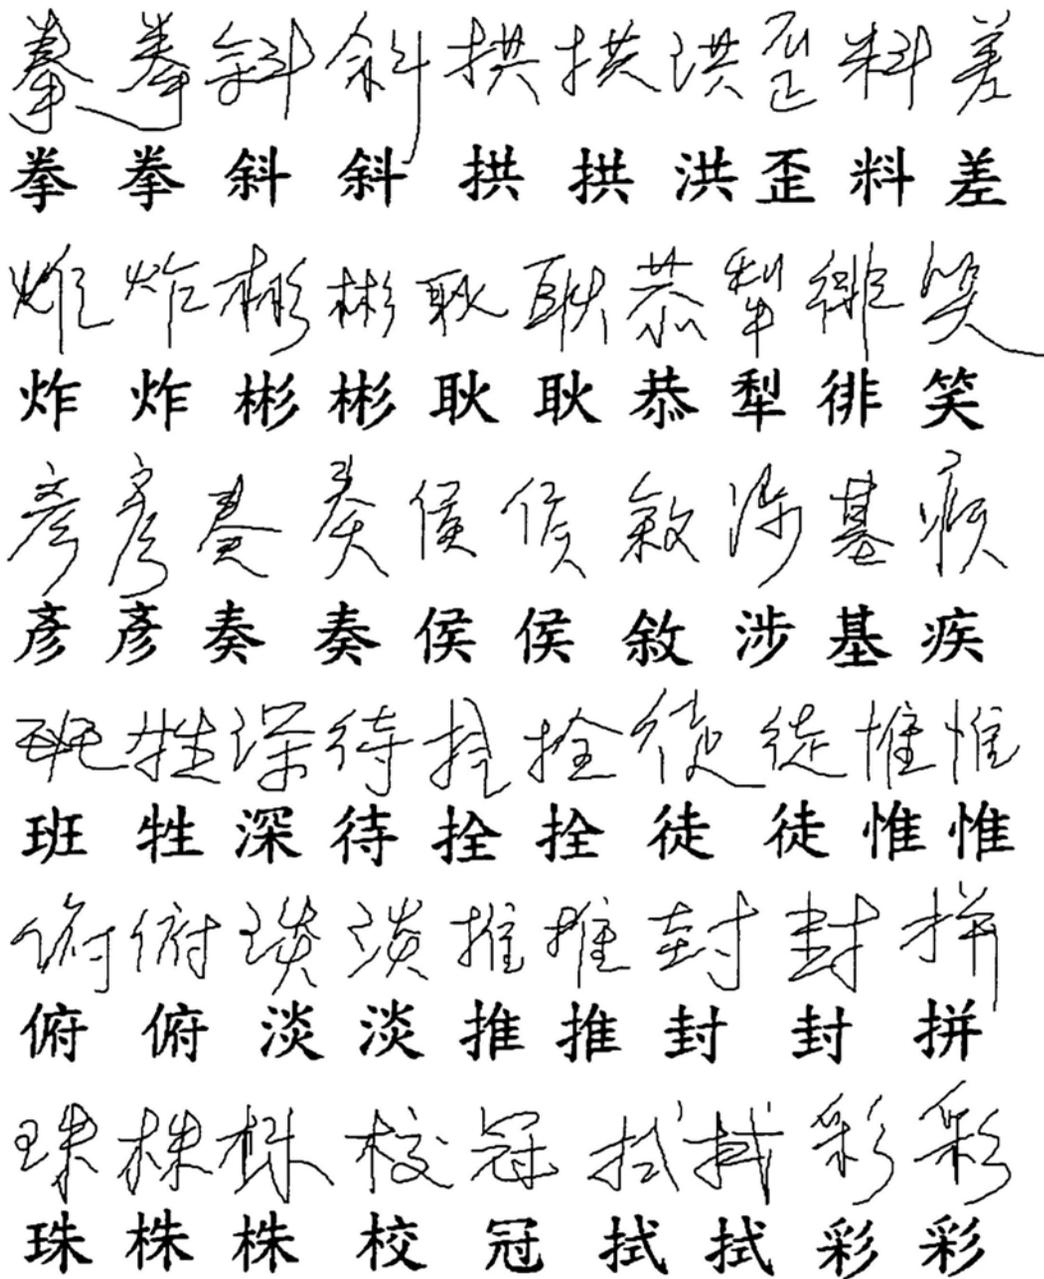 拳拳斜斜拱拱洪歪料差
拳拳斜斜拱拱洪歪料差
炸炸彬彬耿耿恭犁徘笑
炸炸彬彬耿耿恭犁徘笑
彦彦奏奏侯侯敘涉基疾
彦彦奏奏侯侯敘涉基疾
班牲深待拴拴徒徒惟惟
班牲深待拴拴徒徒惟惟
俯俯淡淡推推封封拼
俯俯淡淡推推封封拼
珠株株校冠拭拭彩彩
珠株株校冠拭拭彩彩